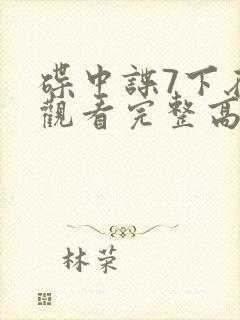 碟中諜7下
觀看完整高
林荣